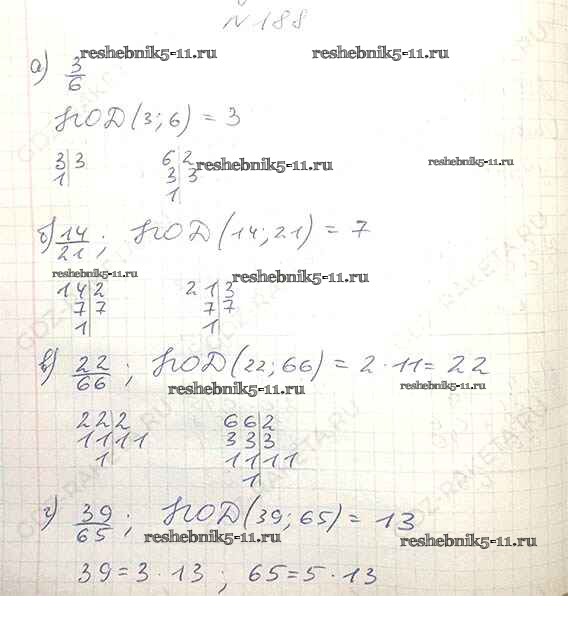 №188
reshebnik5-11.ru reshebnik5-11.ru
а) 3/6
НОД(3;6) = 3
3|3 6|2
1| 3|3
1|
reshebnik5-11.ru reshebnik5-11.ru
б) 14/21; НОД(14;21) = 7
reshebnik5-11.ru reshebnik5-11.ru
14|2 21|3
7|7 7|7
1| 1|
в) 22/66; НОД(22;66) = 2·11 = 22
reshebnik5-11.ru reshebnik5-11.ru
22|2 66|2
11|11 33|3
1| 11|11
1|
г) 39/65; НОД(39;65) = 13
reshebnik5-11.ru reshebnik5-11.ru
39 = 3·13; 65 = 5·13
GDZ-RAKETA.RU